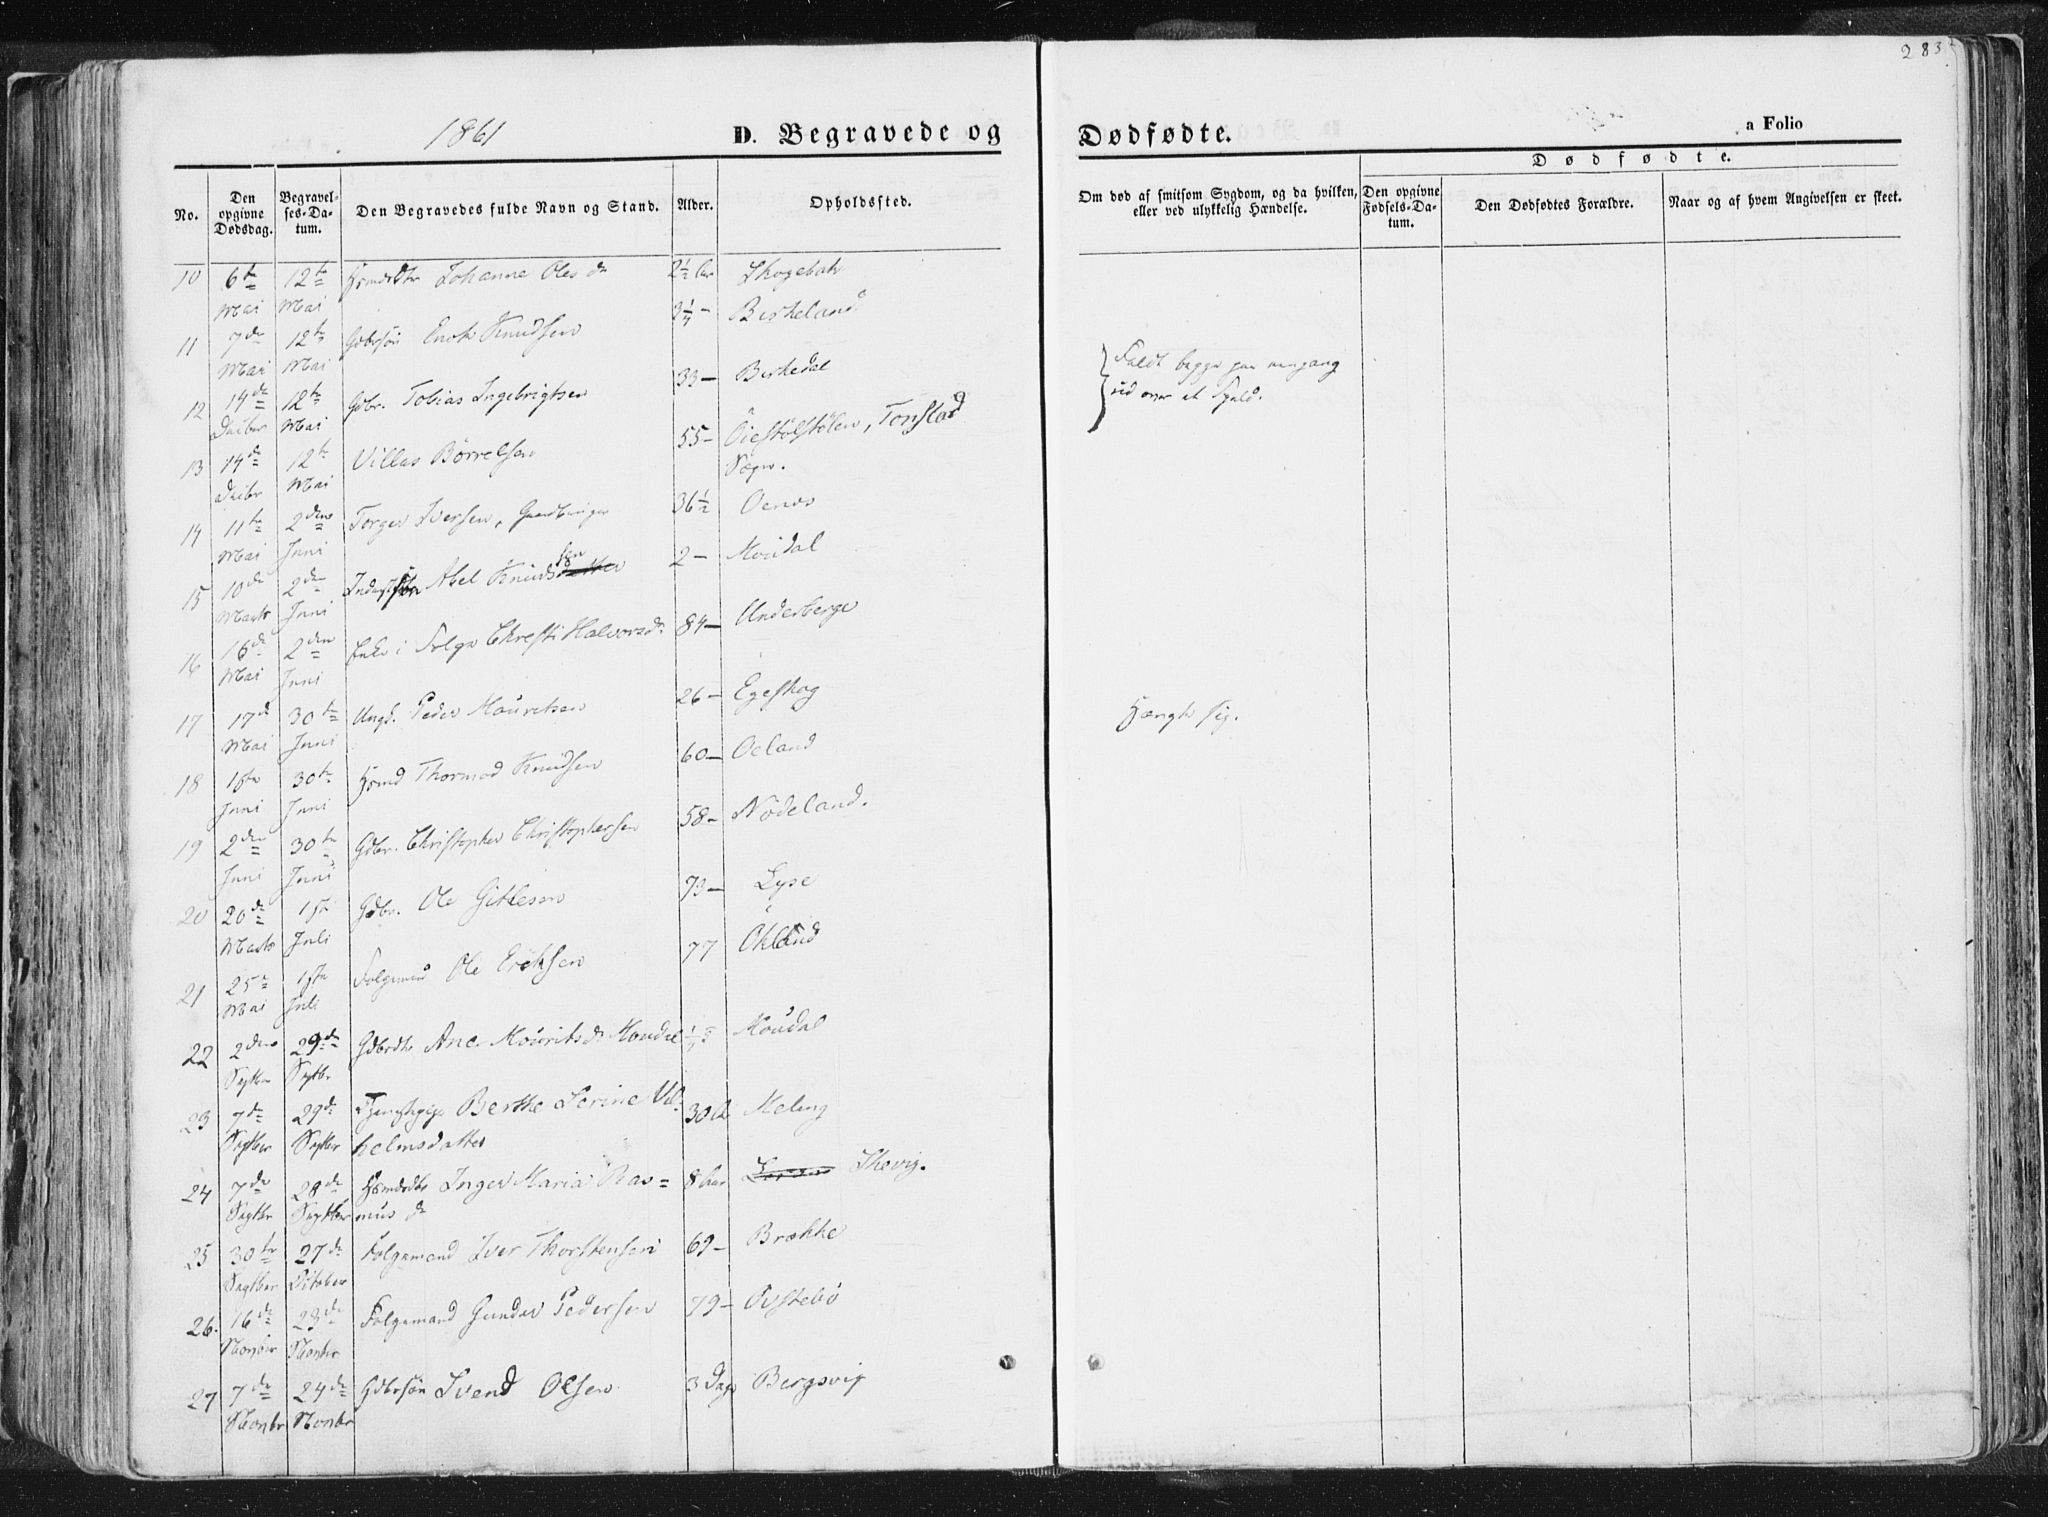 283
1861
D. Begravede og Dødfødte.
a Folio
No.
Den opgivne Dødsdag.
Begravelses-Datum.
Den Begravedes fulde Navn og Stand.
Alder.
Opholdssted.
Om død af smitsom Sygdom, og da hvilken, eller ved ulykkelig Hændelse.
Dødfødte.
Den opgivne Fødsels-Datum.
Den Dødfødtes Forældre.
Naar og af hvem Angivelsen er skeet.
10 6te Mai 12te Mai Johanne Olesdr 2½ Aar
11 7de Mai 12te Mai Gdbrsön Knudsen 2¼ - Birkeland
12 14de Mai 12te Gdbr. Tobias Ingebrigtsen 33 - Birkedal
13 14de 12te Mai Villas Börrelsen 55 - Öiestölstölen, Tonstad Sogn.
{ Faldt begge paa ud over et Fjeld.
14 11te Mai 2den Juni Torger Iversen, 36½
15 10de 2den Juni Abel Knudssen 2 - Moudal
16 16de Mai 2den Juni Enke i Folge Chresti Halvorsdr 84 - Underberge
17 17de Mai 30te Juni Ungd. Peder Mouritsen 26 - Egeskog Hængte sig.
18 Juni 30te Juni Hsmd Thormod Knudsen 60 - Oeland
19 2den Juni 30te Juni Gdbr. Christopher Christophersen 58 - Nödeland.
20 20de Marts 1ste Juli Gdbr. Ole Gitlesen 73 - Lyse
21 25de Mai 1ste Juli Folgemand Ole Eriksen 77 Ökland
22 2den Septbr 29de Septbr Gdbrdtr Ane Mouritsdr Moudal Moudal
23 7de Septber 29de Septbr Tjenestepige Berthe Serine Vilhelmsdatter 30 Aar Meling
24 7de Septbr 28de Septbr Hsmdsdtr Inger Maria Rasmusdr 8 Aar Skevig.
25 30te Septber 27de October Folgemand Iver Thorstensen 69 - Brække
26. 16de Novbr 23de Novbr Folgemand Gunder Pedersen 79 - Övstebö
27 7de Novbr 24de Novbr Gdbrsön Svend Olsen 3 Dage Bergsvig